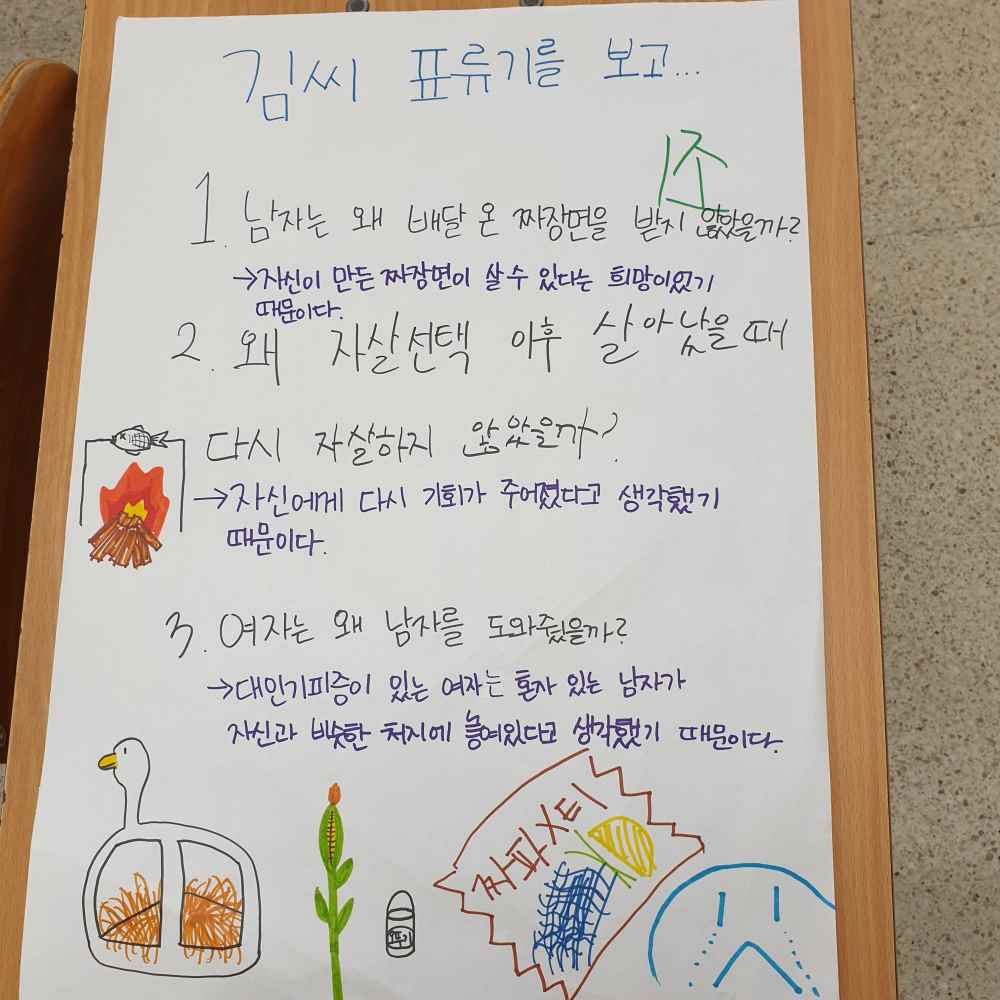 김씨 표류기를 보고...
1조
1. 남자는 왜 배달 온 짜장면을 받지 않았을까?
→자신이 만든 짜장면이 살 수 있다는 희망이었기
때문이다.
2. 왜 자살선택 이후 살아났을때
다시 자살하지 않았을까?
→자신에게 다시 기회가 주어졌다고 생각했기
때문이다.
3. 여자는 왜 남자를 도와줬을까?
→대인기피증이 있는 여자는 혼자 있는 남자가
자신과 비슷한 처지에 놓여있다고 생각했기 때문이다.
짜파게티